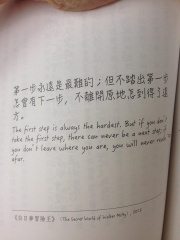 第一步永遠是最難的；但不踏出第一步
怎會有下一步，不離開原地怎到得了遠
方。
The first step is always the hardest. But if you don't
take the first step, there can never be a next step; if
you don't leave where you are, you will never reach
afar.
《白日夢冒險王》(The Secret World of Walter Mitty), 2013